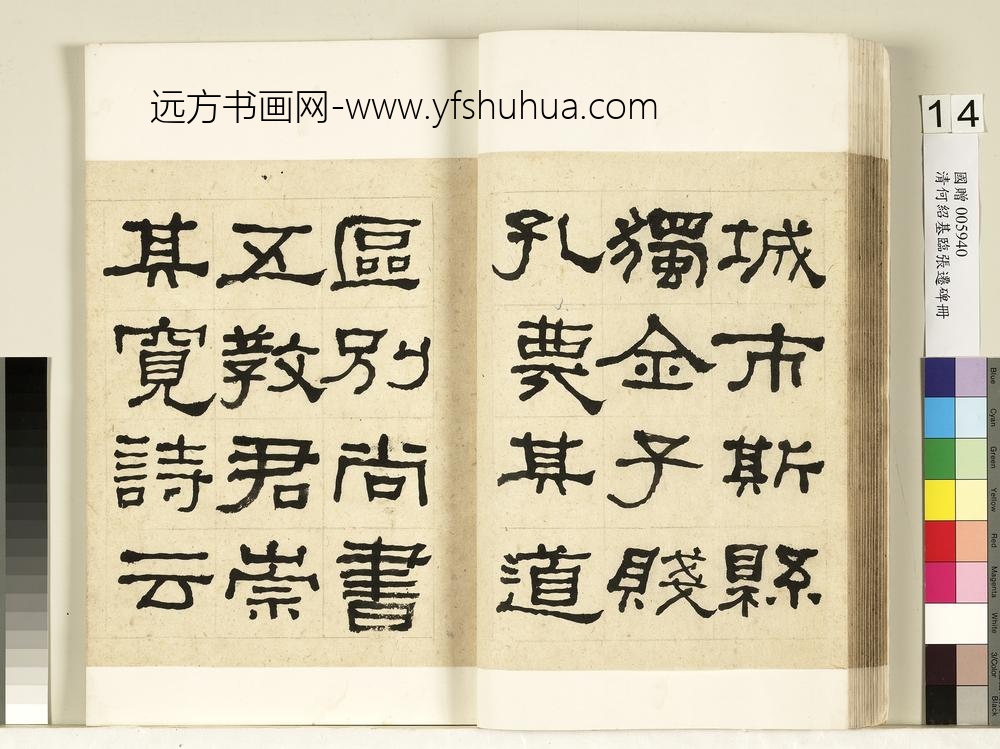 远方书画网-www.yfshuhua.com
城市斯縣
獨金子賤
孔蔑其道
區別尚書
五教君崇
其寬詩云
14
國贈 005940
清何紹基臨張遷碑冊
Blue
Cyan
Green
Yellow
Red
Magenta
White
3/Color
Black